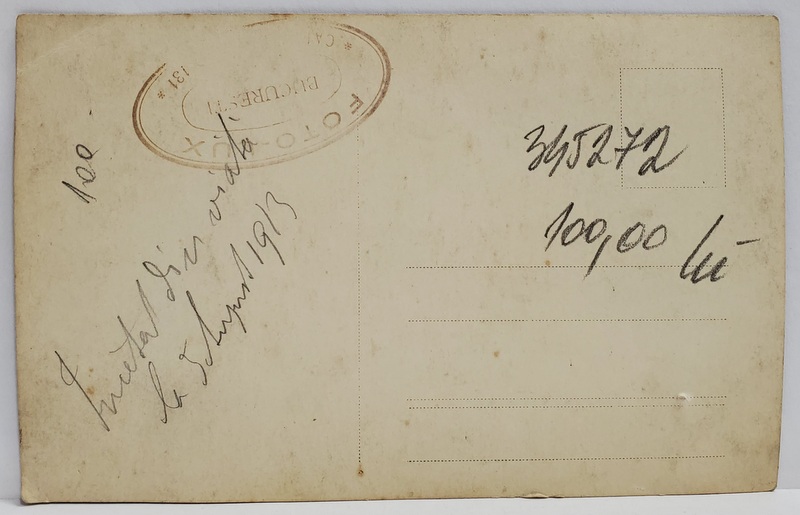 FOTO-LUX
* CAL
131 *
BUCUREȘTI
100 -
Încetat din viață
la 5 August 1913
345272
100,00 lei